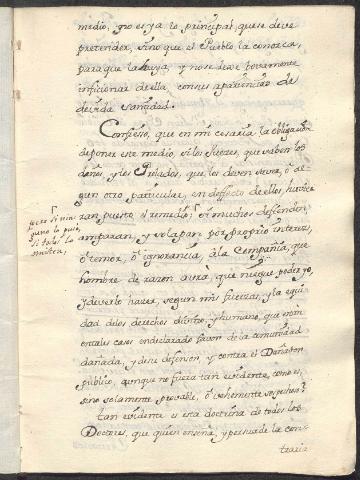 medio, y no es ya lo principal, que se deve
pretender, sino que el Pueblo la conozca,
para que la huya, y no se deve torpemente
inficionar de ella, con sus apariencias de
devida sanidad.
Confiesso, que en mi cesaria la obligacion
de poner este medio, si los Juezes, que saben los
daños, y los Prelados, que los deven saver, ò al-
gun otro particular, en deffecto de ellos, huvie-
ran puesto el remedio; si muchos defienden,
amparan, y solapan por proprio interes,
ò temor, ò ignorancia, à la Compañia, que
hombre de razon avrà, que niegue poder yo,
y deverlo hazer, segun mis fuerzas, y la equi-
dad de los derechos divino, y humano, que nom
en tales casos en declarado favor de la comunidad
dañada, y deve defension, y contra el Dañador
publico, aunque no fuera tan evidente, como es,
sino solamente provable, ò vehemente sospechoso?
tan evidente es esta doctrina de todos los
Doctores, que quien enseña, y persuade la con-
traria
pero si nin
guno lo puso,
si todos lo
omiten,